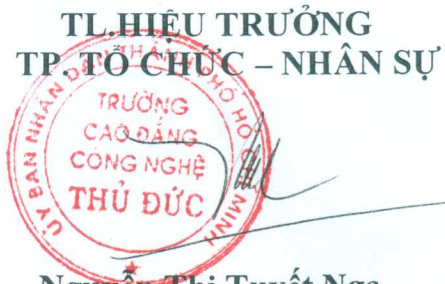 TL.HIỆU TRƯỞNG
TP. TỔ CHỨC – NHÂN SỰ
ỦY BAN NHÂN DÂN THÀNH PHỐ HỒ CHÍ MINH
TRƯỜNG
CAO ĐẲNG
CÔNG NGHỆ
THỦ ĐỨC
Nguyễn Thị Tuyết Nga